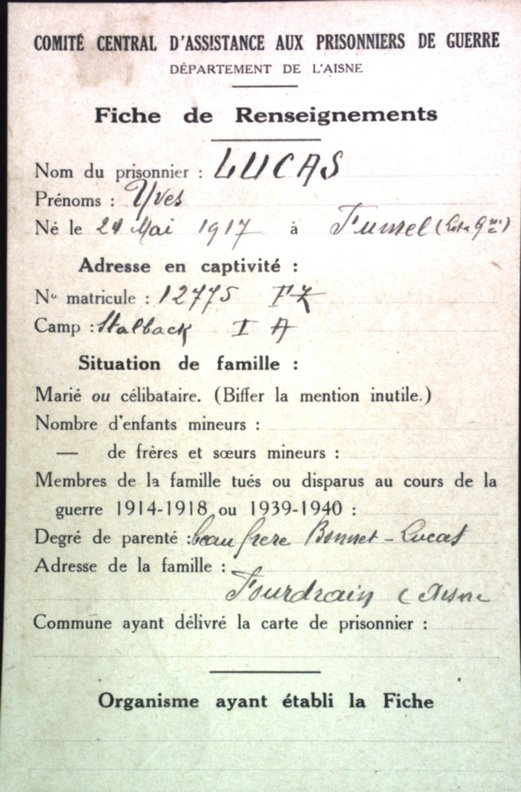 COMITÉ CENTRAL D'ASSISTANCE AUX PRISONNIERS DE GUERRE
DÉPARTEMENT DE L'AISNE
Fiche de Renseignements
Nom du prisonnier : LUCAS
Prénoms : Yves
Né le 24 Mai 1917 à Fumel (Lot &
Adresse en captivité :
N° matricule : 12775
Camp : Stalback I A
Situation de famille :
Marié ou célibataire. (Biffer la mention inutile.)
Nombre d'enfants mineurs :
— de frères et sœurs mineurs :
Membres de la famille tués ou disparus au cours de la
guerre 1914-1918 ou 1939-1940 :
Degré de parenté : beau frere Bonnet - Lucas
Adresse de la famille :
Fourdrain (Aisne
Commune ayant délivré la carte de prisonnier :
Organisme ayant établi la Fiche